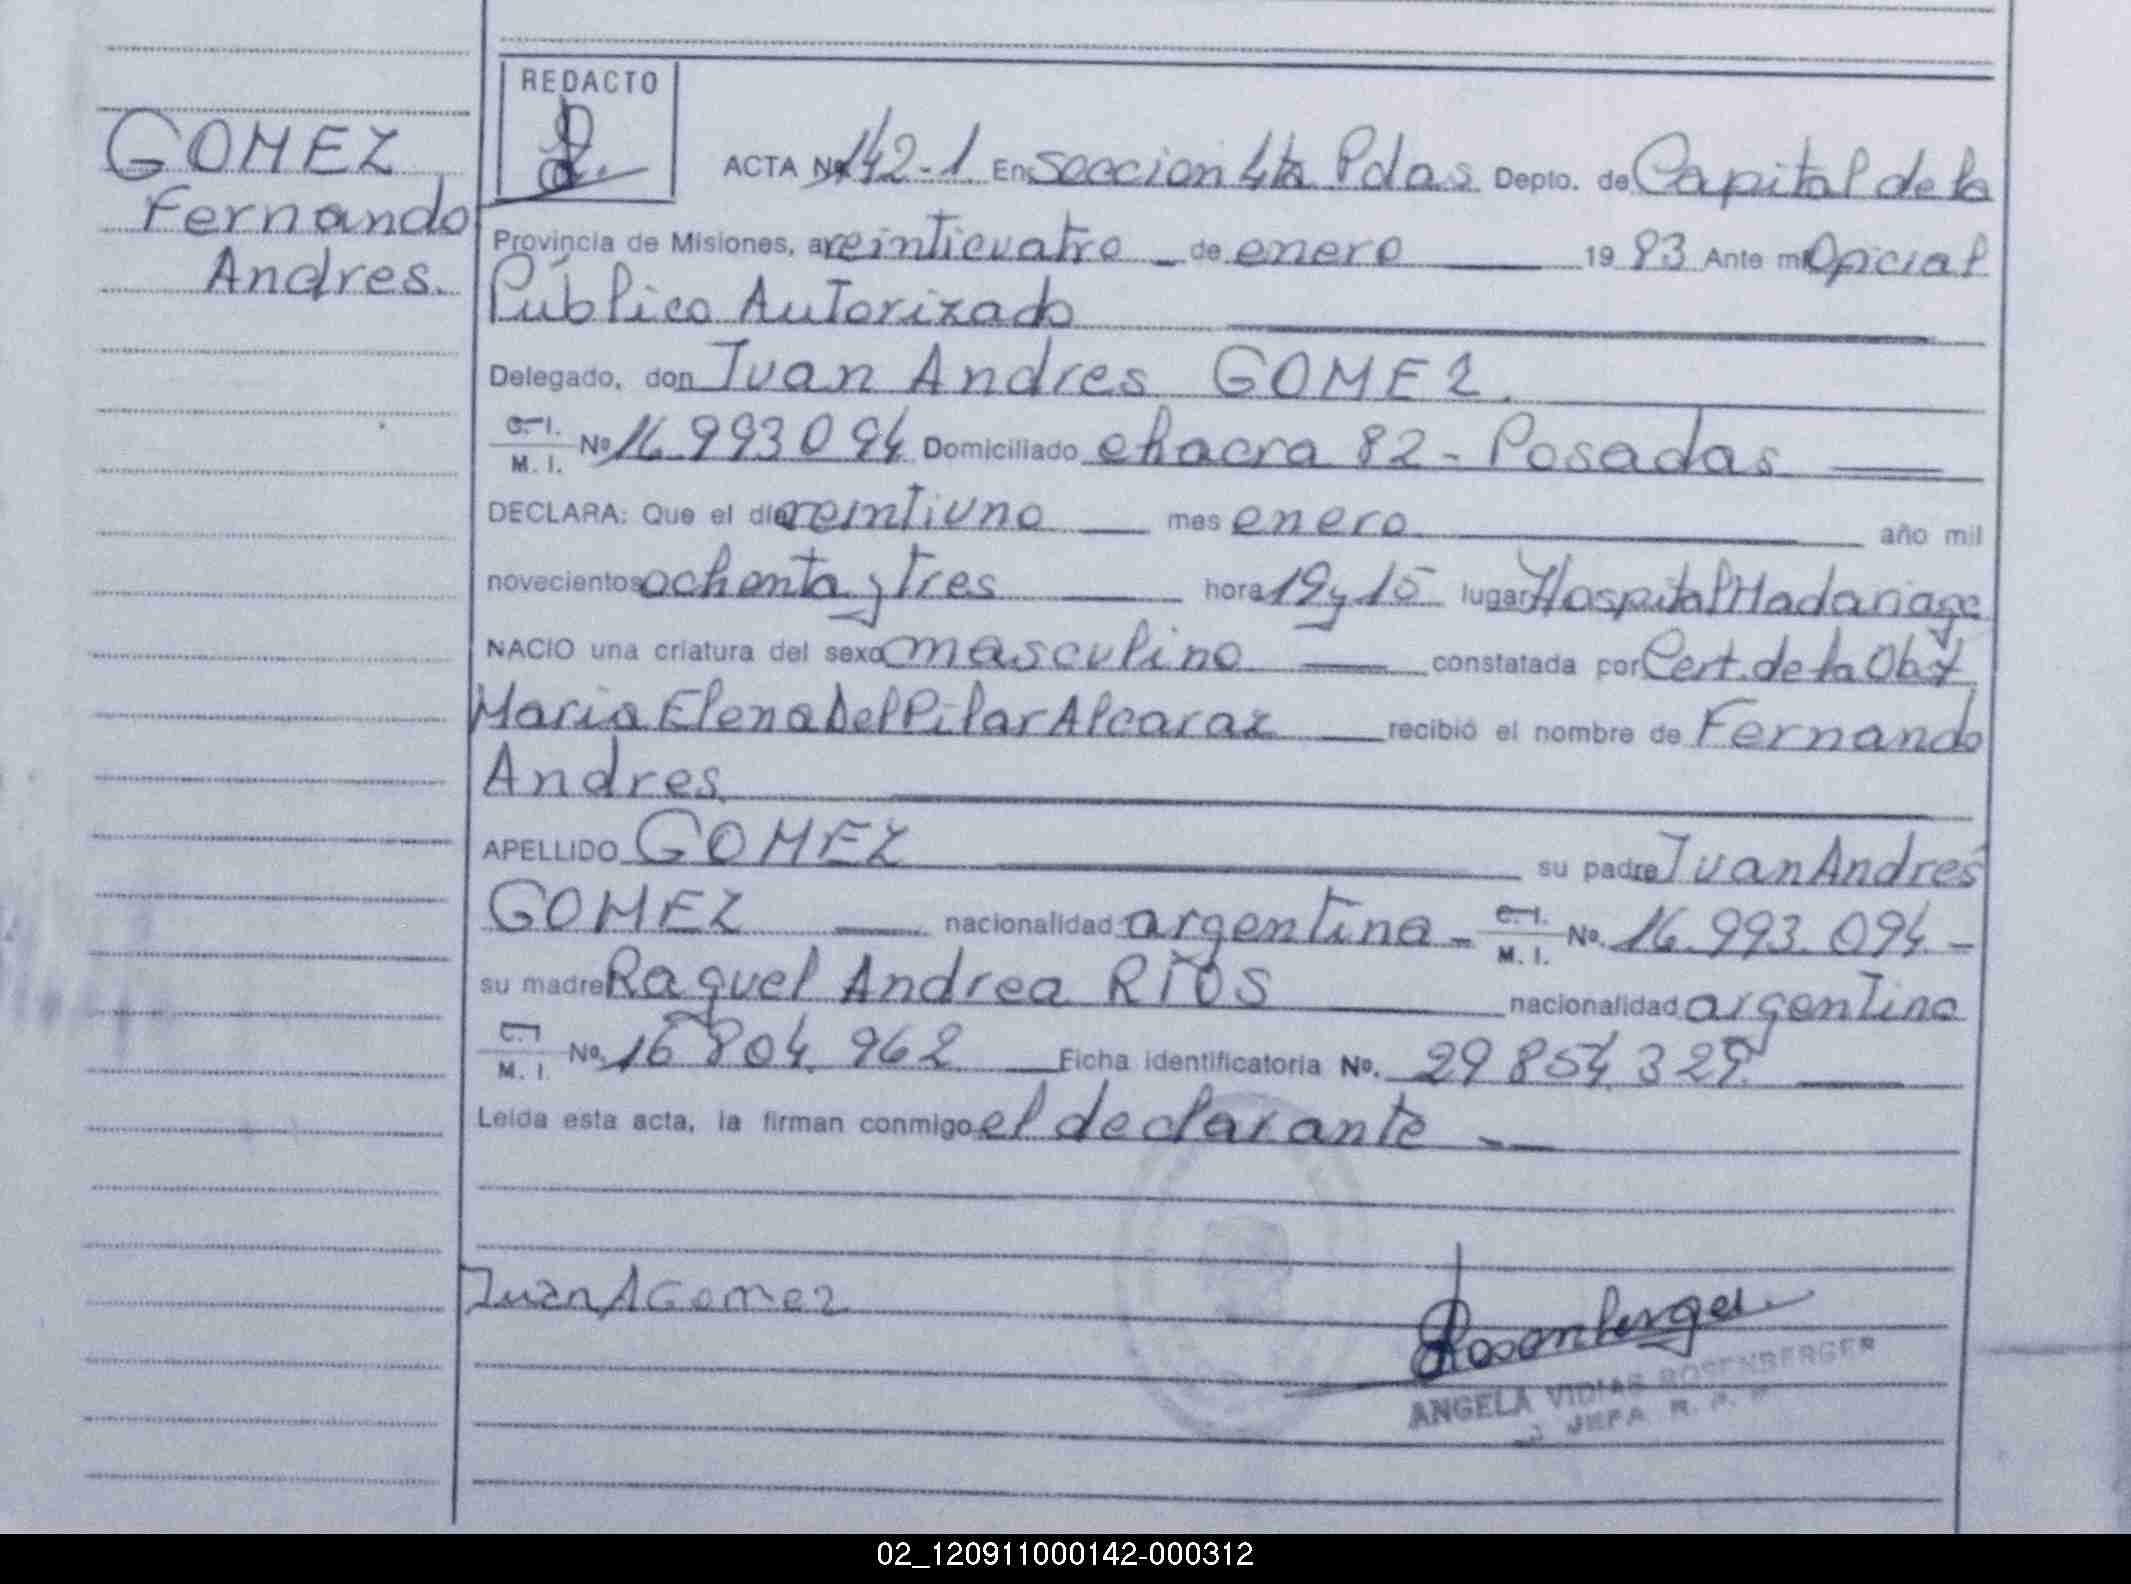 GOMEZ
Fernando
Andres.
REDACTO
ACTA Nº 142-1 En seccion 4ta Pdas Depto. de Capital de la
Provincia de Misiones, a veinticuatro - de enero 1983 Ante mi Oficial
Público Autorizado
Delegado, don Juan Andres GOMEZ.
C. I.
M. I. Nº 16.993.094 Domiciliado chacra 82 - Posadas
DECLARA: Que el día veintiuno mes enero año mil
novecientos ochenta y tres hora 19 y 15 lugar Hospital Madariaga
NACIO una criatura del sexo masculino constatada por Cert. de la Obst
Maria Elena Del Pilar Alcaraz recibió el nombre de Fernando
Andres
APELLIDO GOMEZ su padre Juan Andrés
GOMEZ nacionalidad argentina - C. I.
M. I. Nº. 16.993.094. -
su madre Raquel Andrea RIOS nacionalidad argentina
C. I.
M. I. Nº. 16 804. 962 Ficha identificatoria Nº. 29 854.329
Leída esta acta, la firman conmigo el declarante
Juan A Gomez
Rosenberger
ANGELA ROSENBERGER
JEFA R. P.
02_120911000142-000312